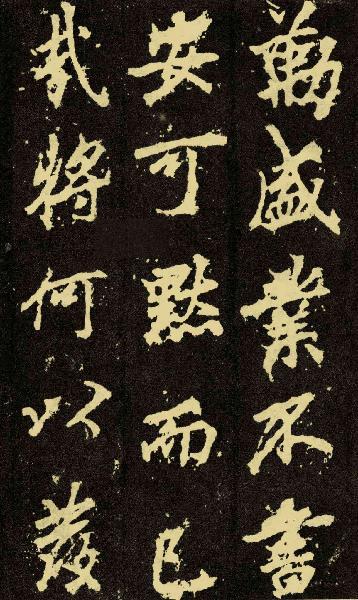 勳盛業不書
安可默而已
哉將何以發